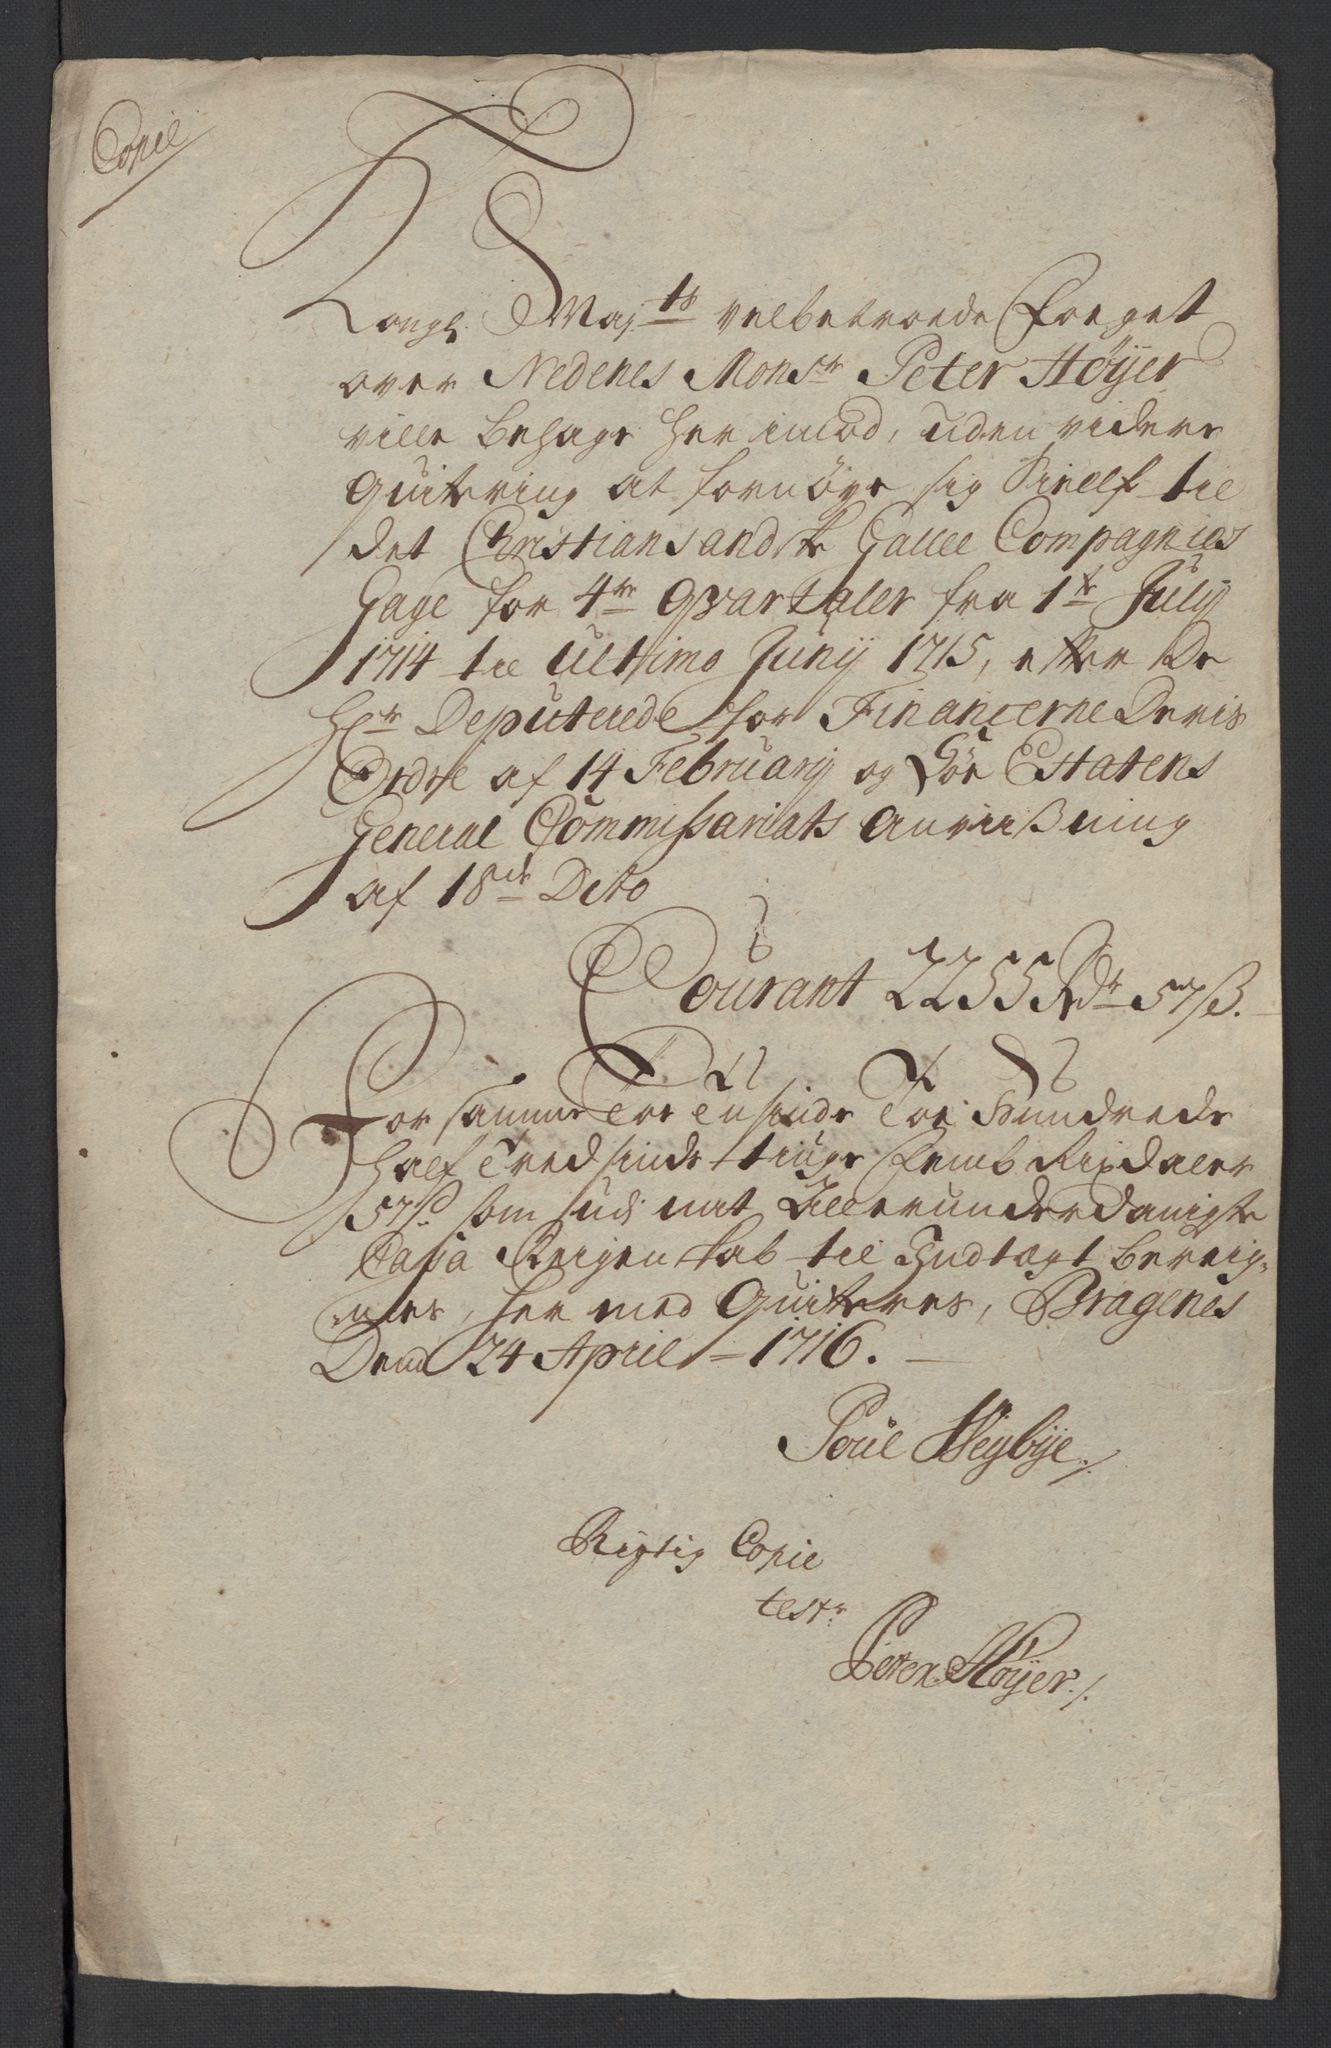 Copie
Kongl. Maj:ts velbetroede Foeget
over Nedenes Mons:r Peter Høyer
ville behage her imod, uden videre
Quitering at fornøye sig Sielf til
det Christiansandske Gallee Compagnies
Gage for 4re Qvartaler fra 1te July
1714 til Ultimo Juny 1715, efter De
Hr Deputerede for Financerne Deris
Ordre af 14 February og Søe Estatens
General Commissariats Anviißning
af 18de Dito
Courant 2255 Rdr 57 ß.
For samme Toe Tusinde Toe Hundrede
Half Tredsindstiuge Femb Rixdaler
57 ß. som udi mit Allerunderdanigste
Cassa Reigenskab til Indtægt bereig-
nes, her med Quiteres, Bragenes
Den 24 April 1716.
Poul Weybye
Rigtig Copie
test:
Peter Høyer